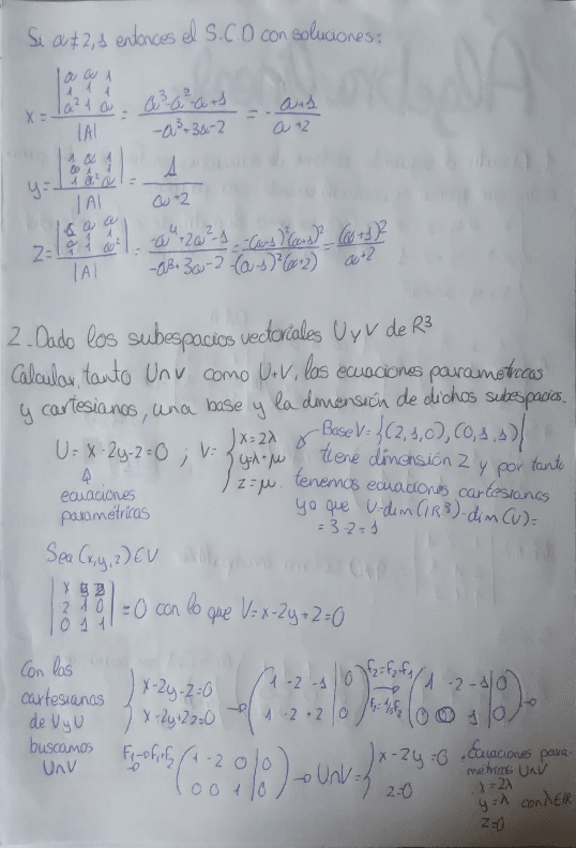 Si a ≠ 2,1 entonces el S.C.D con soluciones:
x = |a a 1; 1 1 1; a² 1 a| / |A| = (a³-a²-a+1) / (-a³+3a-2) = - (a+1) / (a+2)
y = |1 a 1; a 1 1; 1 a² a| / |A| = 1 / (a+2)
z = |1 a a; a 1 1; 1 1 a²| / |A| = (-a⁴+2a²-1) / (-a³+3a-2) = (-(a-1)²(a+1)²) / (-(a-1)²(a+2)) = (a+1)² / (a+2)
2. Dado los subespacios vectoriales U y V de R³
Calcular, tanto U∩V como U+V, las ecuaciones parametricas
y cartesianas, una base y la dimensión de dichos subespacios.
U = x-2y-z=0 ; V= { x=2λ
y=λ+μ
z=μ
ecuaciones
paramétricas
Base V = {(2,1,0), (0,1,1)}
tiene dimensión 2 y por tanto
tenemos ecuaciones cartesianas
ya que V=dim(IR³)-dim(V)=
= 3-2=1
Sea (x,y,z) ∈ V
|x y z; 2 1 0; 0 1 1| = 0 con lo que V = x-2y+2=0
Con las
cartesianas
de V y U
buscamos
U∩V
} x-2y-z=0
x-2y+2z=0
→ (1 -2 -1 | 0; 1 -2 +2 | 0) F₂=F₂-F₁ → F₂=⅓F₂ (1 -2 -1 | 0; 0 0 1 | 0) →
F₁→F₁+F₂ → (1 -2 0 | 0; 0 0 1 | 0) → U∩V = } x-2y=0
z=0
. Ecuaciones para-
métricas U∩V
x=2λ
y=λ con λ∈IR
z=0